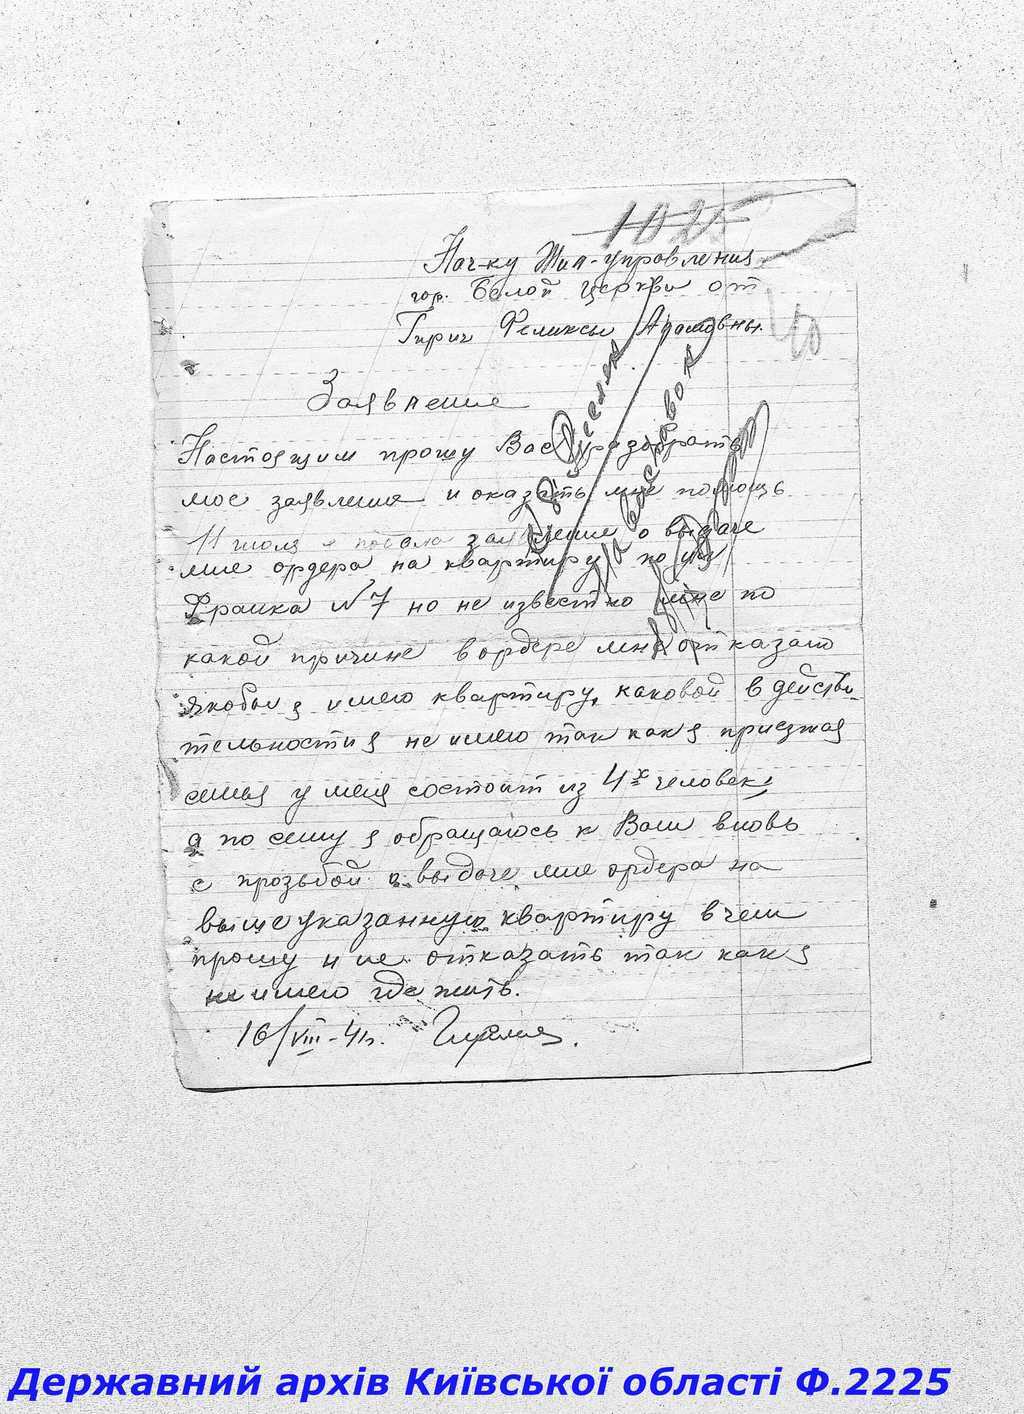 1025
Нач-ку Жил-управления
гор. Белой церкви от
Гирич Феликсы Адамовны.
40
Заявление
Настоящим прошу Вас разобрать
мое заявление и оказать мне помощь
11 июля я подала заявление о выдаче
мне ордера на квартиру по ул
Франка №7 но не известно мне по
какой причине в ордере мне отказано
якобы я имею квартиру, каковой в действи
тельности я не имею так как я приезжая
семья у меня состоит из 4х человек,
а по сему я обращаюсь к Вам вновь
с прозьбой о выдаче мне ордера на
вышеуказанную квартиру в чем
прошу и не отказать так как я
не имею где жить.
16/VIII-41г.
Державний архів Київської області Ф.2225